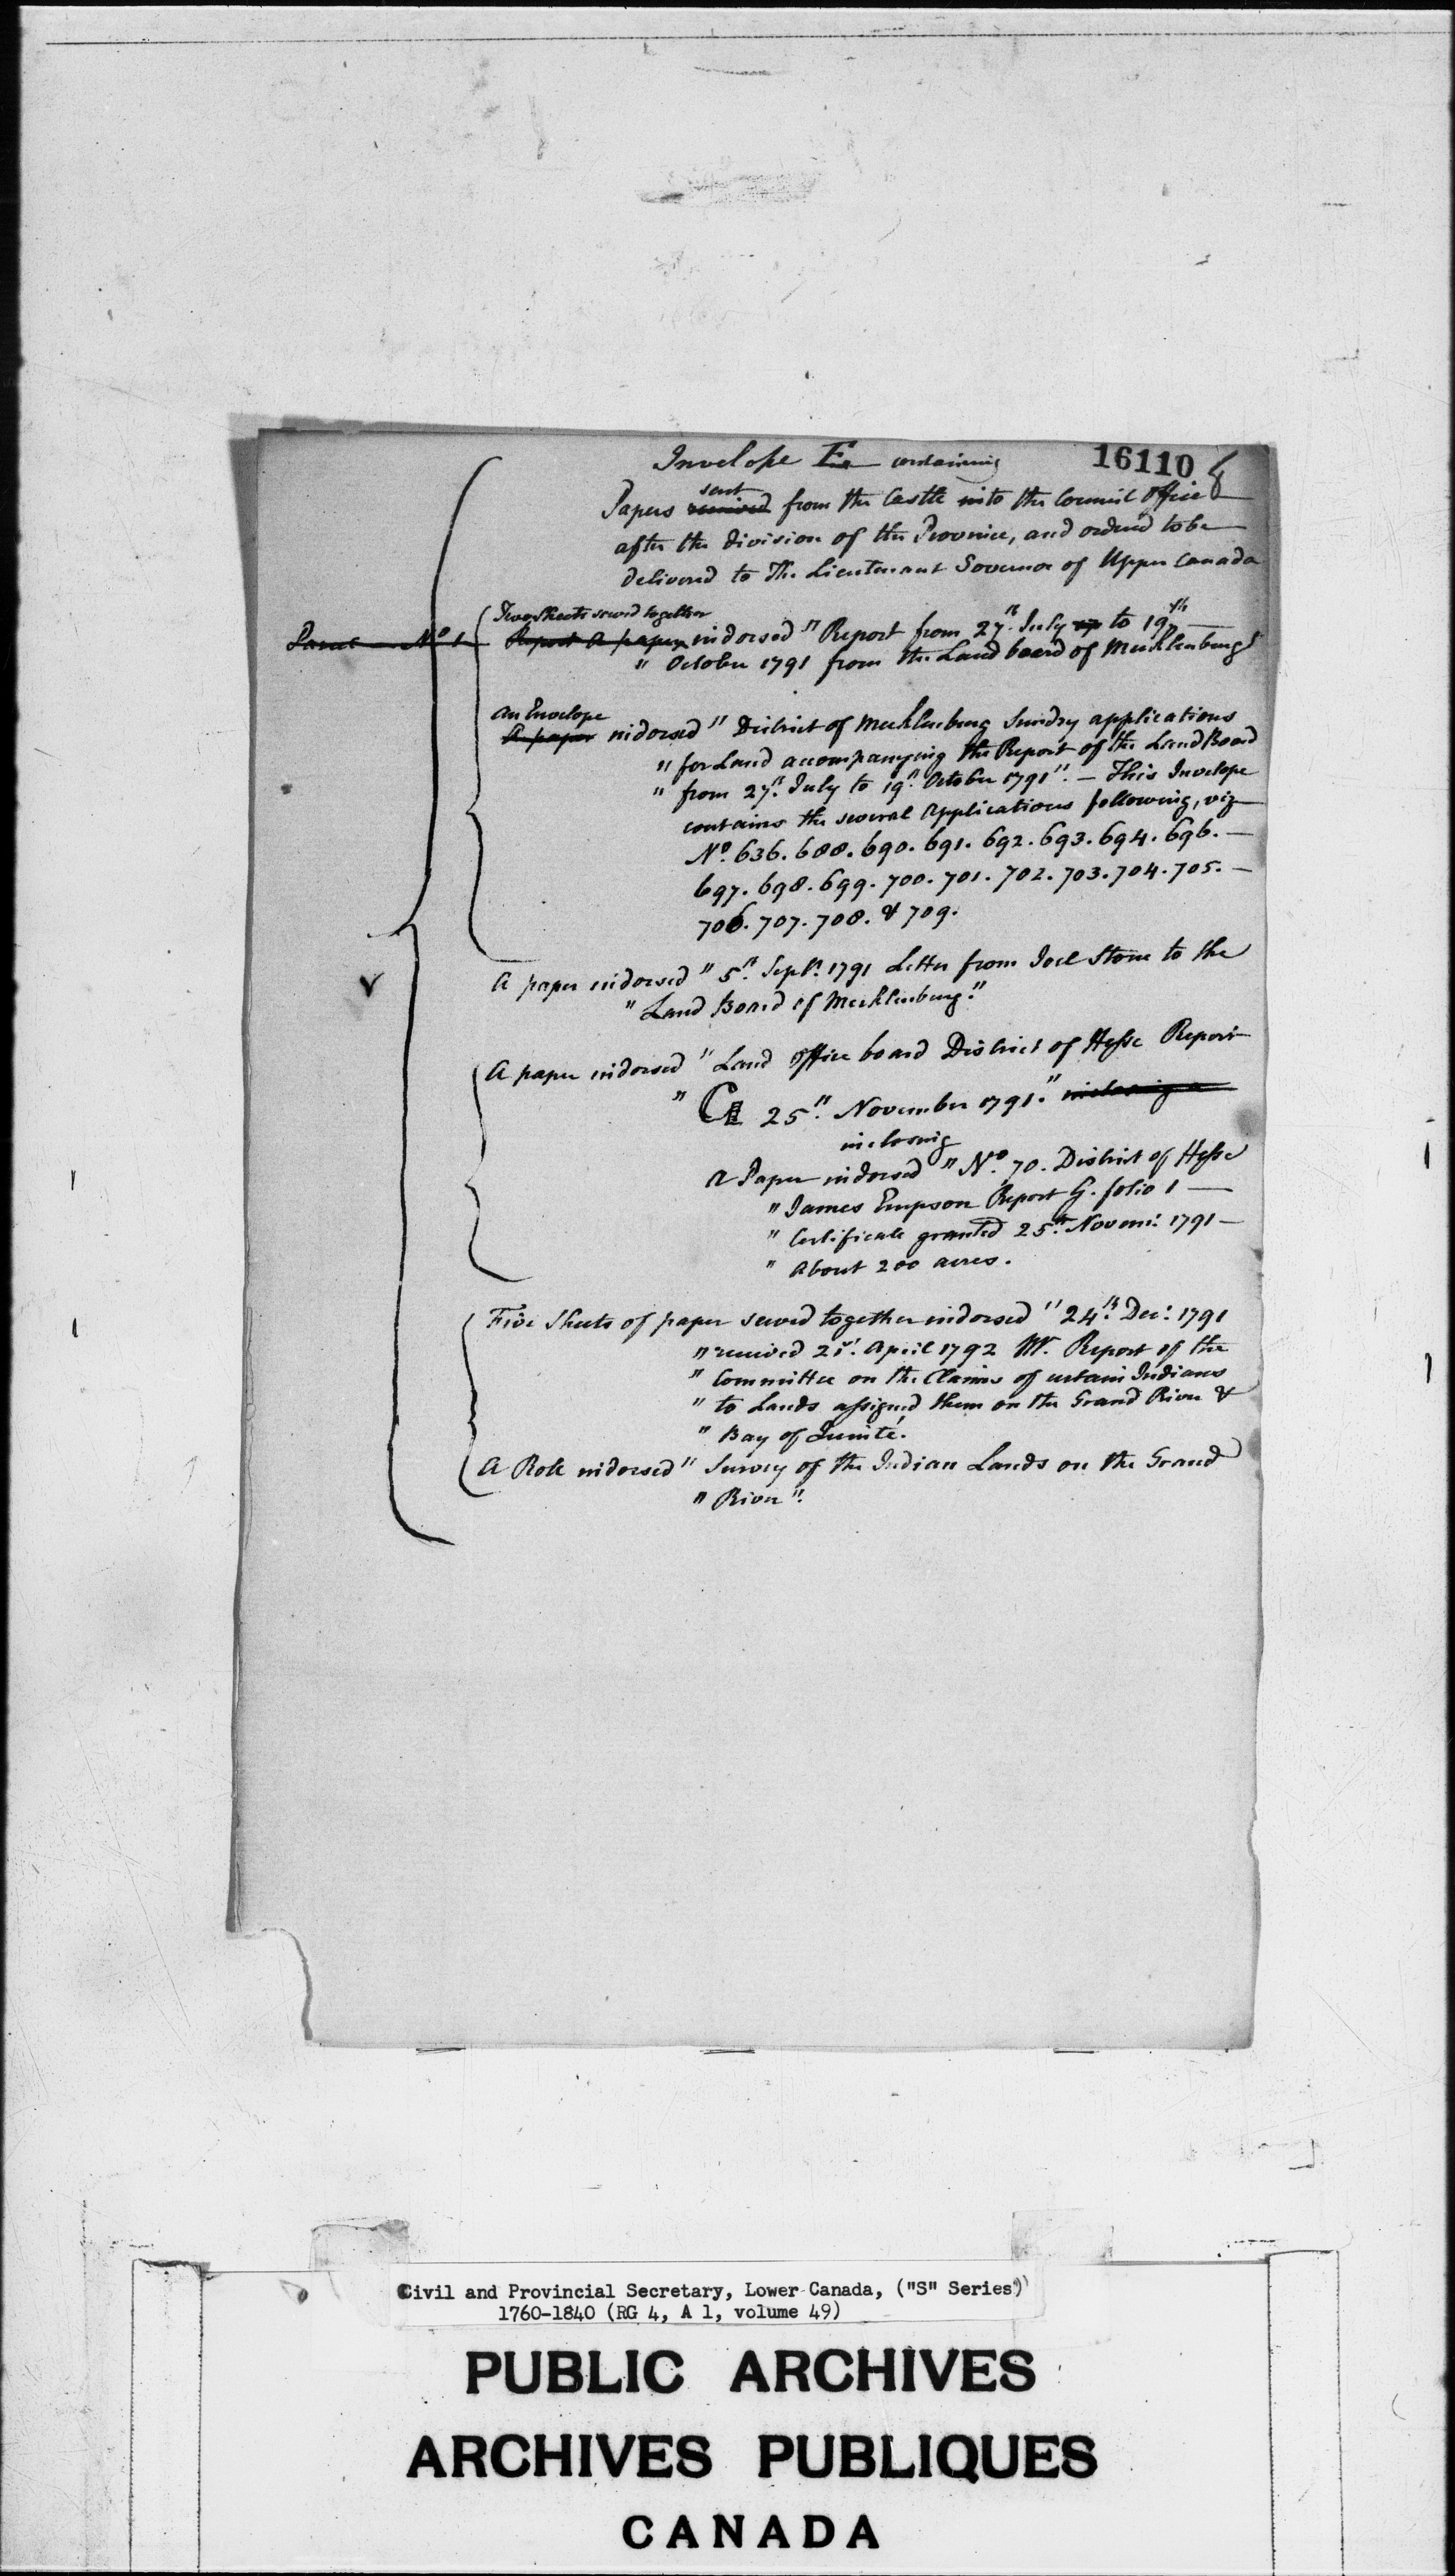 16110
8
Invelope E containing
Papers received sent from the Castle into the Council Office
after the division of the Province, and orderd to be
delivered to The Lieutenant Governor of Upper Canada
Two Sheets sewed together
Parcel No 1
Report A paper indorsed " Report from 27th July to 19th
" October 1791 from the Land board of Mecklenburg"
An Envelope
A paper indorsed " District of Mecklenburg Sundry applications
" for Land accompanying the Report of the Land Board
" from 27th July to 19th October 1791". — This Invelope
contains the several Applications following, viz
No. 636. 688. 690. 691. 692. 693. 694. 696. —
697. 698. 699. 700. 701. 702. 703. 704. 705. —
706. 707. 708. & 709.
A paper indorsed " 5th Septr. 1791 Letter from Joel Stone to the
" Land Board of Mecklenburg."
A paper indorsed " Land Office board District of Hesse Report
" G 25th November 1791." inclosing a
inclosing
A Paper indorsed " No. 70. District of Hesse
" James Empson Report G. folio 1 —
" Certificate granted 25th Novemr. 1791 —
" About 200 acres.
Five Sheets of paper sewed together indorsed " 24th Decr. 1791
" received 21st. April 1792 Report of the
" Committee on the Claims of certain Indians
" to Lands assigned them on the Grand River &
" Bay of Quinté.
A Role indorsed " Survey of the Indian Lands on the Grand
" River".
Civil and Provincial Secretary, Lower Canada, ("S" Series)
1760-1840 (RG 4, A 1, volume 49)
PUBLIC ARCHIVES
ARCHIVES PUBLIQUES
CANADA